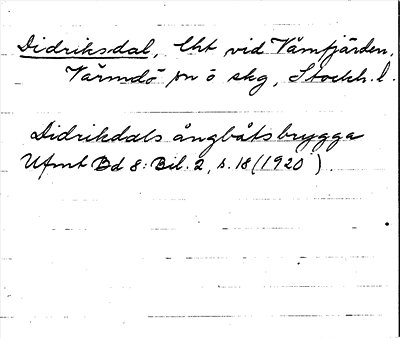 Didriksdal, lht vid Vämfjärden,
Värmdö sn ö skg, Stockh. l.
Didrikdals ångbåtsbrygga
Ufmt Bd 8: Bil. 2, s. 18 (1920)